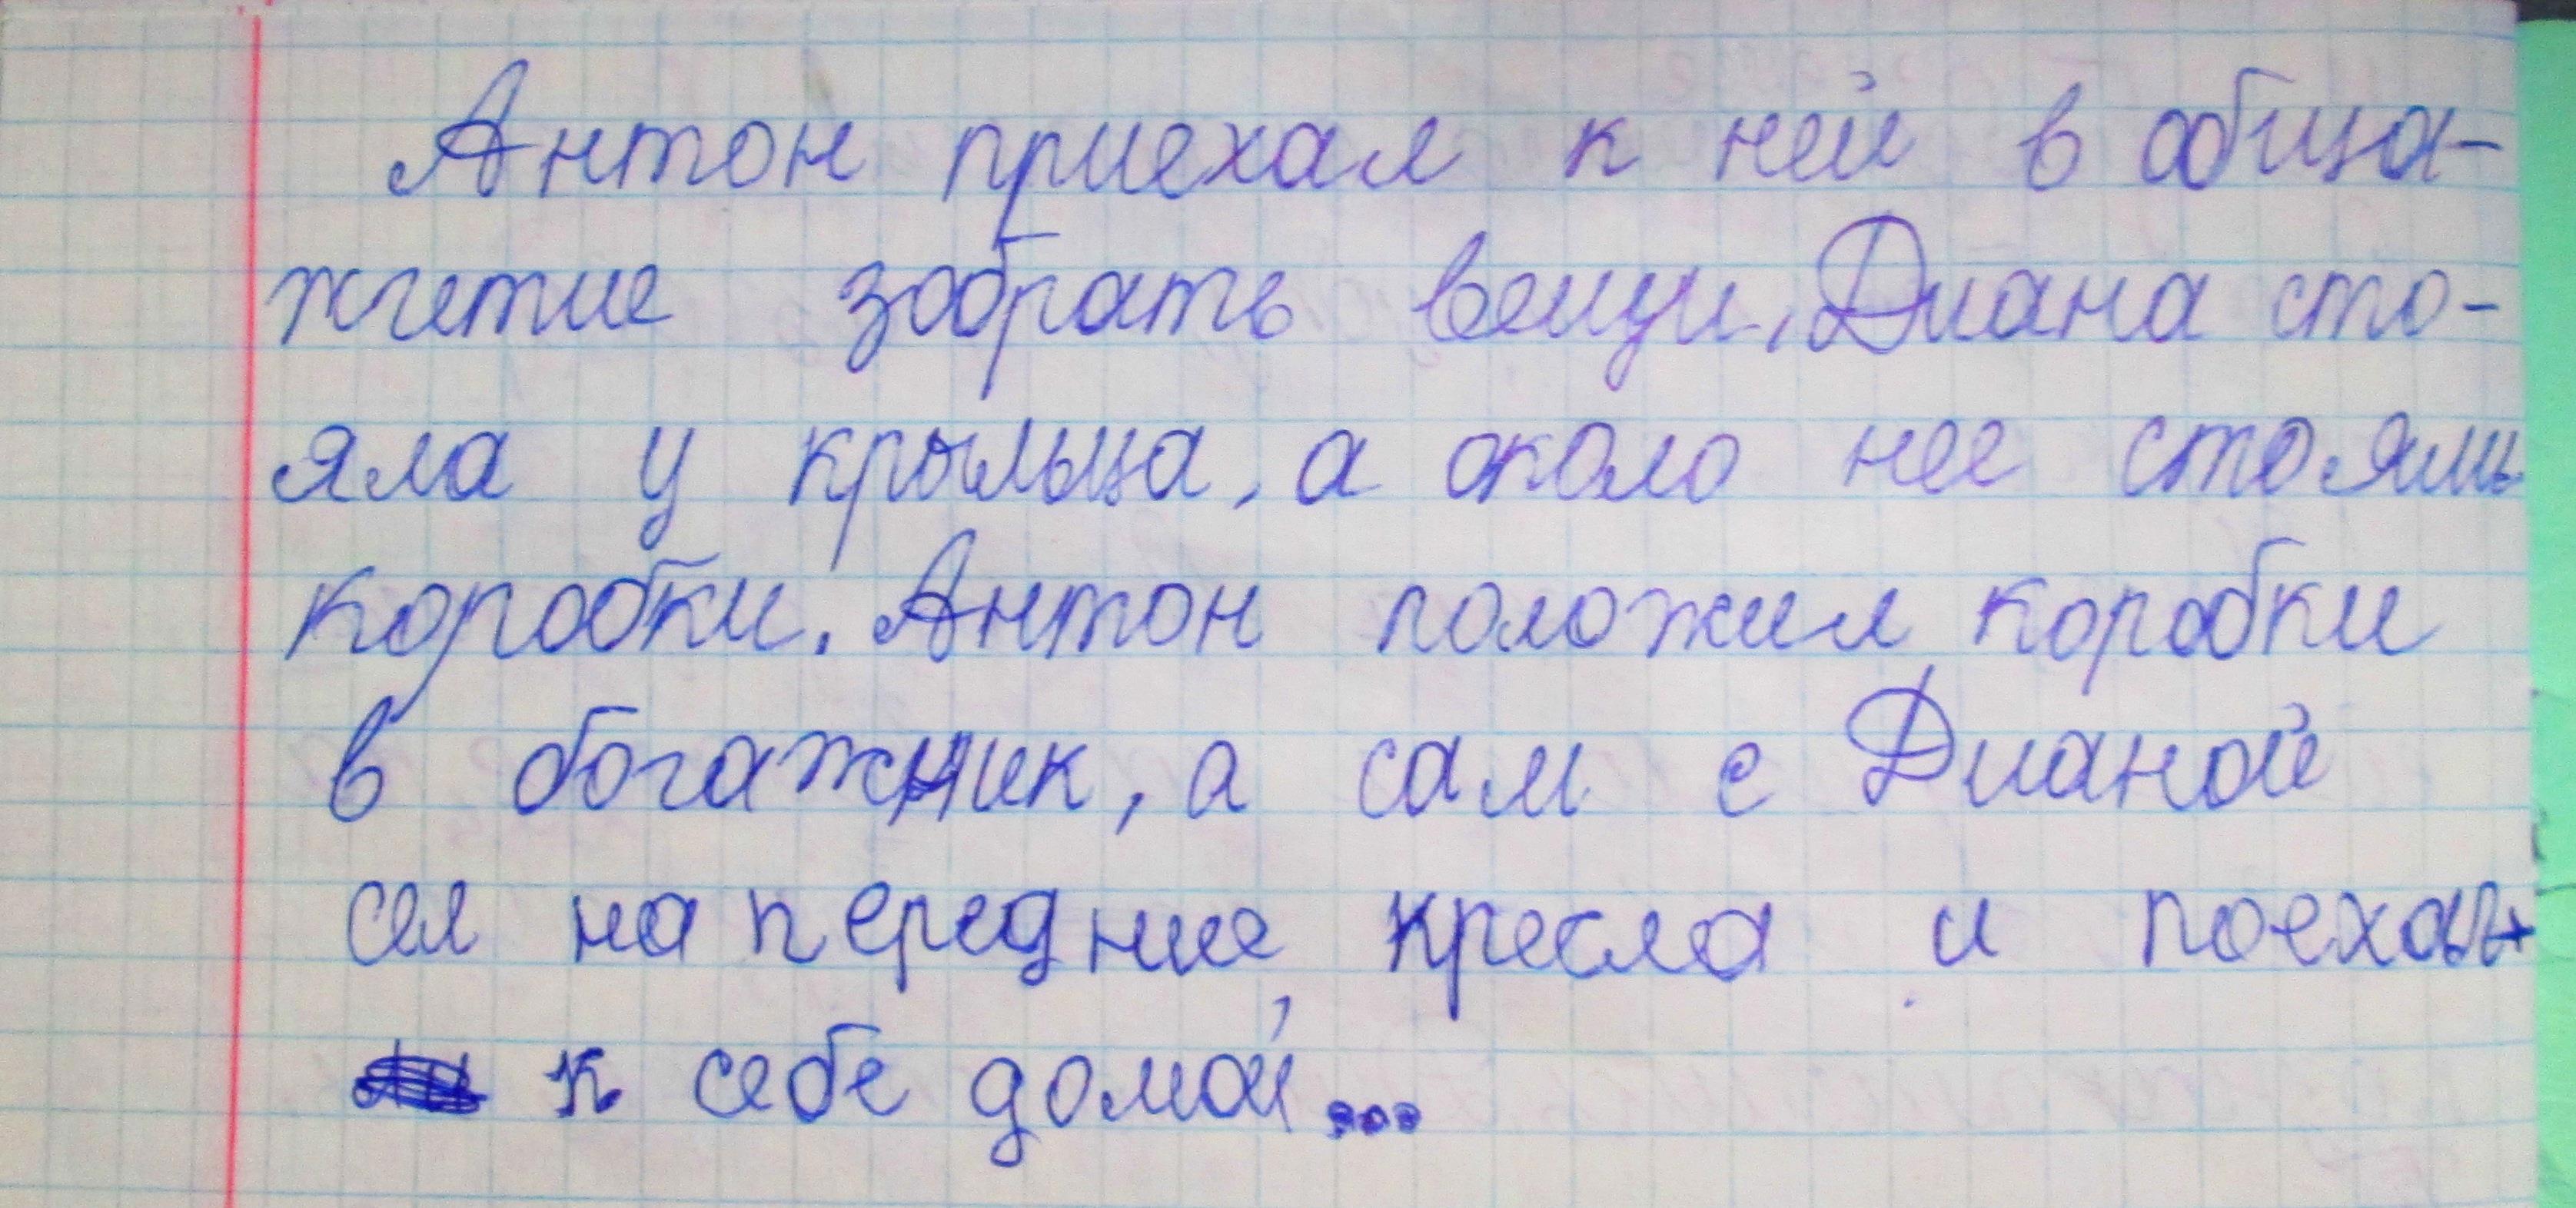 Антон приехал к ней в обща-
житие зобрать вещи. Диана сто-
яла у крыльца, а около нее стояли
коробки. Антон положил коробки
в богажник, а сам с Дианой
сел на передние кресла и поехал
к себе домой...